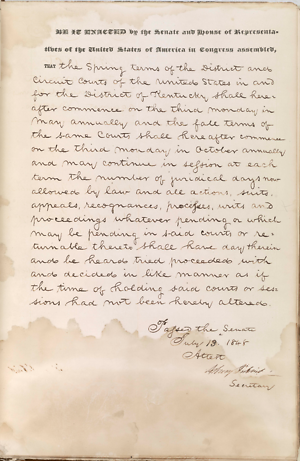 BE IT ENACTED by the Senate and House of Representa-
tives of the United States of America in Congress assembled,
THAT the Spring terms of the District and
Circuit Courts of the United States in and
for the District of Kentucky shall here-
after commence on the third monday in
may annually and the fall terms of
the same Courts shall hereafter commence
on the third monday in October annually
and may continue in session at each
term the number of juridical days now
allowed by law and all actions, suits,
appeals, recognances, processes, writs and
proceedings whatever pending or which
may be pending in said courts or re-
turnable thereto shall have day therein
and be heard tried proceeded with
and decided in like manner as if
the time of holding said courts or ses-
sions had not been hereby altered.
Passed the Senate
July 13 1848
Attest
Secretary